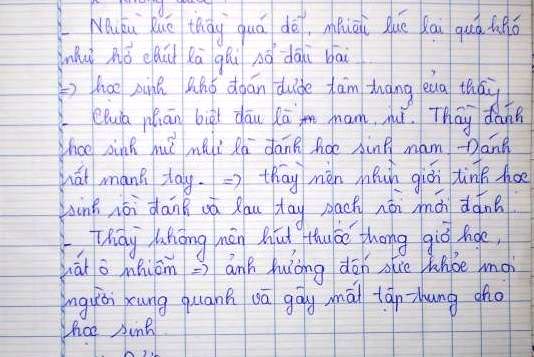 - Nhiều lúc thầy quá dễ, nhiều lúc lại quá khó
như hở chút là ghi sổ đầu bài.
=> học sinh khó đoán được tâm trạng của thầy
- Chưa phân biệt đâu là nam, nữ. Thầy đánh
học sinh nữ như là đánh học sinh nam. Đánh
rất mạnh tay. => thầy nên nhìn giới tính học
sinh rồi đánh và lau tay sạch rồi mới đánh.
- Thầy không nên hút thuốc trong giờ học,
rất ô nhiễm => ảnh hưởng đến sức khỏe mọi
người xung quanh và gây mất tập trung cho
học sinh